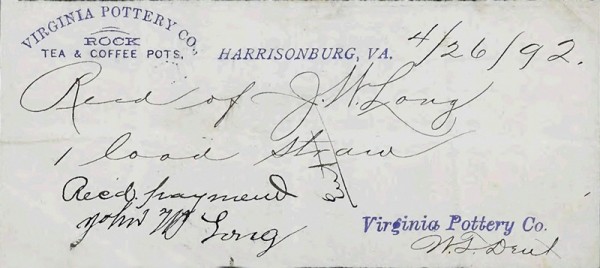 VIRGINIA POTTERY CO,
ROCK
TEA & COFFEE POTS.
HARRISONBURG, VA. 4/26/92.
Recd of J. W. Long
1 load straw
Recd. payment
John W Long
Virginia Pottery Co.
W. T. Dent